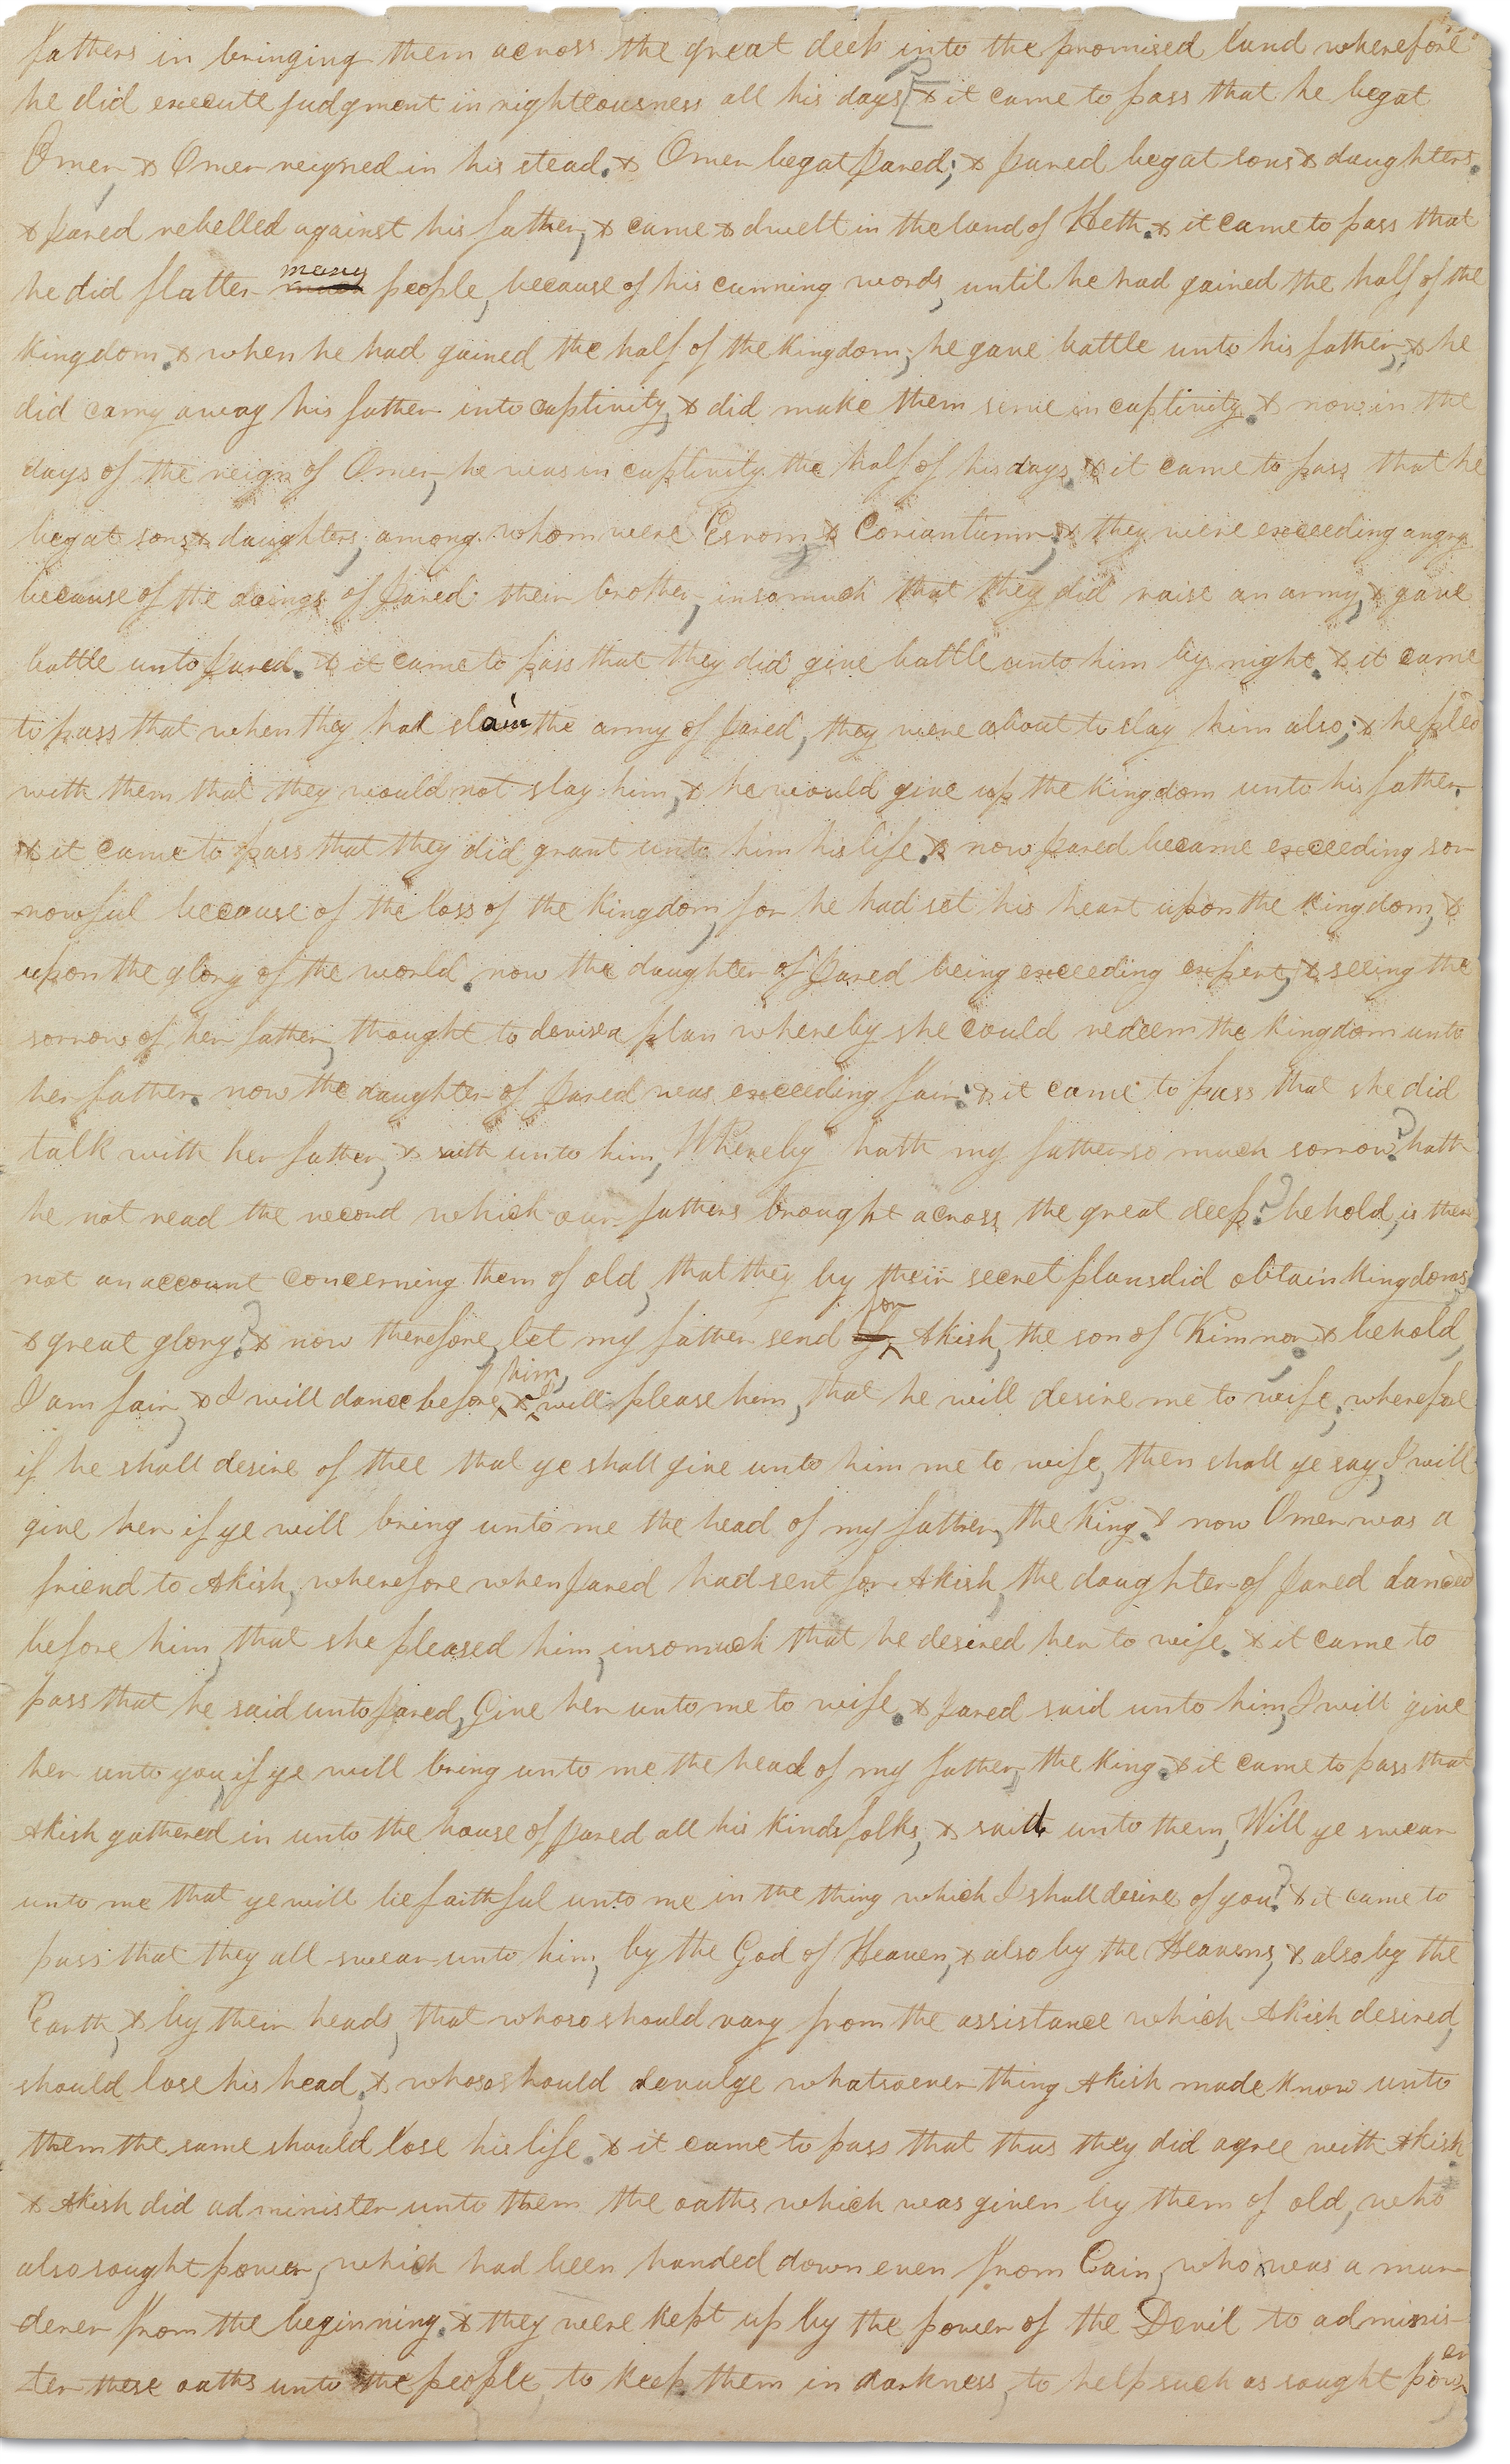 fathers in bringing them across the great deep into the promised land wherefore
he did execute judgment in righteousness all his days [& it came to pass that he begat
Omer, & Omer reigned in his stead. & Omer begat Jared; & Jared begat sons & daughters.
& Jared rebelled against his father, & came & dwelt in the land of Heth. & it came to pass that
he did flatter many people, because of his cunning words, until he had gained the half of the
kingdom. & when he had gained the half of the kingdom, he gave battle unto his father, & he
did carry away his father into captivity, & did make them serve in captivity. & now in the
days of the reign of Omer, he was in captivity the half of his days. & it came to pass that he
begat sons & daughters, among whom were Esrom, & Coriantumr; & they were exceeding angry
because of the doings of Jared their brother, insomuch that they did raise an army, & gave
battle unto Jared. & it came to pass that they did give battle unto him by night. & it came
to pass that when they had slain the army of Jared, they were about to slay him also; & he pled
with them that they would not slay him, & he would give up the kingdom unto his father.
& it came to pass that they did grant unto him his life. & now Jared became exceeding sor-
rowful because of the loss of the kingdom, for he had set his heart upon the kingdom, &
upon the glory of the world. now the daughter of Jared being exceeding expert, & seeing the
sorrow of her father, thought to devise a plan whereby she could redeem the kingdom unto
her father. now the daughter of Jared was exceeding fair. & it came to pass that she did
talk with her father, & saith unto him, Whereby hath my father so much sorrow? hath
he not read the record which our fathers brought across the great deep? behold, is there
not an account concerning them of old, that they by their secret plans did obtain kingdoms
& great glory? & now therefore, let my father send for Akish, the son of Kimnor & behold,
I am fair, & I will dance before him, & I will please him, that he will desire me to wife, wherefore
if he shall desire of thee that ye shall give unto him me to wife, then shall ye say, I will
give her if ye will bring unto me the head of my father, the King. & now Omer was a
friend to Akish, wherefore when Jared had sent for Akish, the daughter of Jared danced
before him, that she pleased him, insomuch that he desired her to wife. & it came to
pass that he said unto Jared, Give her unto me to wife. & Jared said unto him, I will give
her unto you, if ye will bring unto me the head of my father, the King. & it came to pass that
Akish gathered in unto the house of Jared all his kindsfolks, & said unto them, Will ye swear
unto me that ye will be faithful unto me in the thing which I shall desire of you? & it came to
pass that they all swear unto him, by the God of Heaven, & also by the Heavens, & also by the
Earth, & by their heads, that whoso should vary from the assistance which Akish desired,
should lose his head, & whoso should devulge whatsoever thing Akish made know unto
them the same should lose his life. & it came to pass that thus they did agree with Akish
& Akish did administer unto them the oaths which was given by them of old, who
also sought power, which had been handed down even from Cain, who was a mur-
derer from the beginning. & they were kept up by the power of the Devil to adminis-
ter these oaths unto the people, to keep them in darkness, to help such as sought power